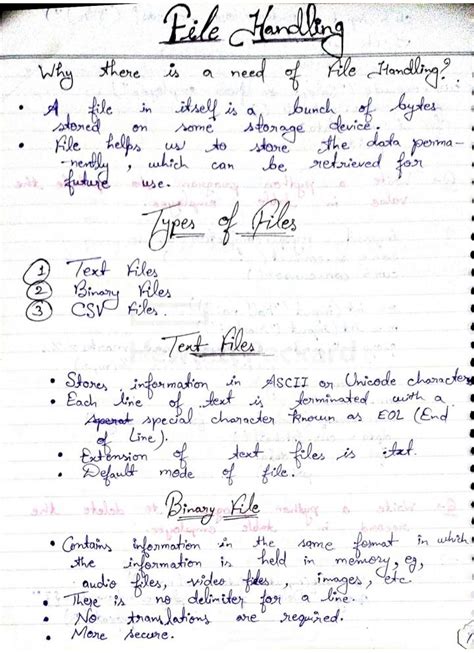 File Handling
Why there is a need of File Handling?
• A file in itself is a bunch of bytes
stored on some storage device.
• File helps us to store the data perma-
nently, which can be retrieved for
future use.
Types of Files
1 Text Files
2 Binary Files
3 CSV Files.
Text Files
• Stores information in ASCII or Unicode characters
• Each line of text is terminated with a
special character known as EOL (End
of Line).
• Extension of text files is .txt.
• Default mode of file.
Binary File
• Contains information in the same format in which
the information is held in memory, eg,
audio files, video files, images, etc.
• There is no delimiter for a line.
• No translations are required.
• More secure.